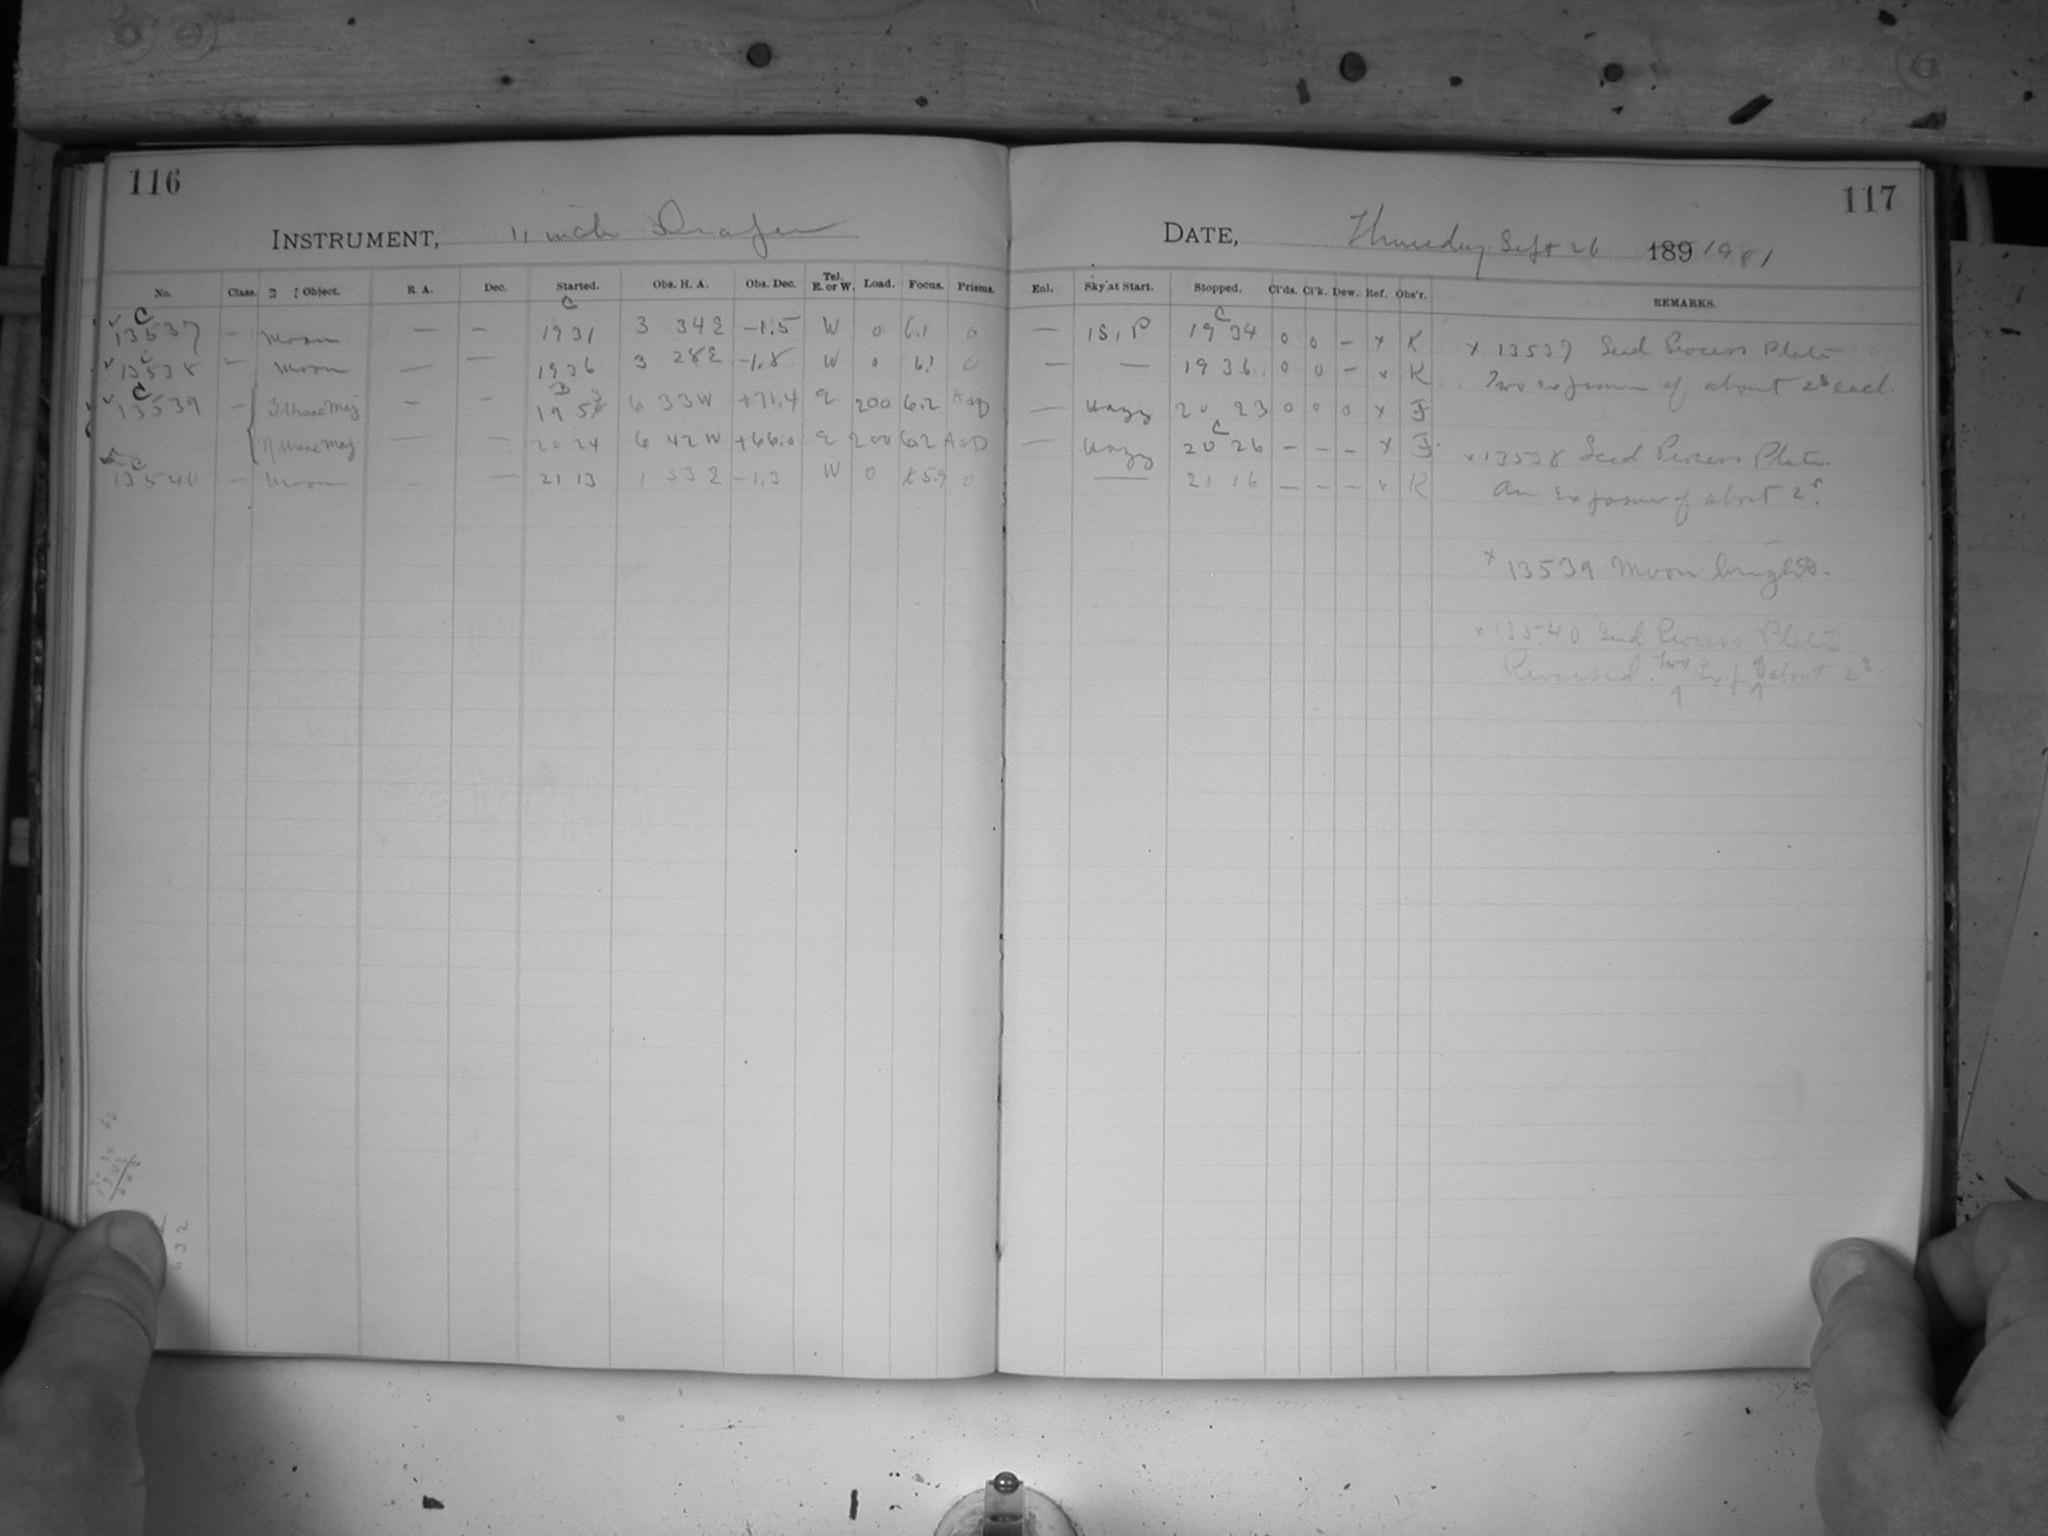 116
117
INSTRUMENT, 11 inch Draper
DATE, Thursday Sept 26 189 1901
No. Class. Object. R. A. Dec. Started. Obs. H. A. Obs. Dec. Tel. E. or W. Load. Focus. Prisms.
Enl. Sky at Start. Stopped. Cl'ds. Cl'k. Dew. Ref. Obs'r. REMARKS.
C 13537 — Moon — — C 19 31 3 34 E -1.5 W 0 6.1 0 — 1S, P C 19 34 0 0 — x K
C 13538 — Moon — — 19 36 3 28 E -1.8 W 0 6.1 0 — — 19 36 0 0 — x K
C 13539 — 3 Ursae Maj — — 6 33 W +71.4 E 200 6.2 — Hazy 20 23 0 0 0 x F
Ursae Maj — — 20 24 6 42 W +66.0 E 200 6.2 — Hazy C 20 26 — — — x F
C 13540 — Moon — — 21 13 1 53 E -1.3 W 0 5.9 0 — 21 16 — — — x K
x 13537 Seed Process Plate
Two exposures of about 2s each.
x 13538 Seed Process Plate
An exposure of about 2s.
x 13539 Moon bright.
x 13540 Seed Process Plate
Reversed. Two Exp. of about 2s.
632